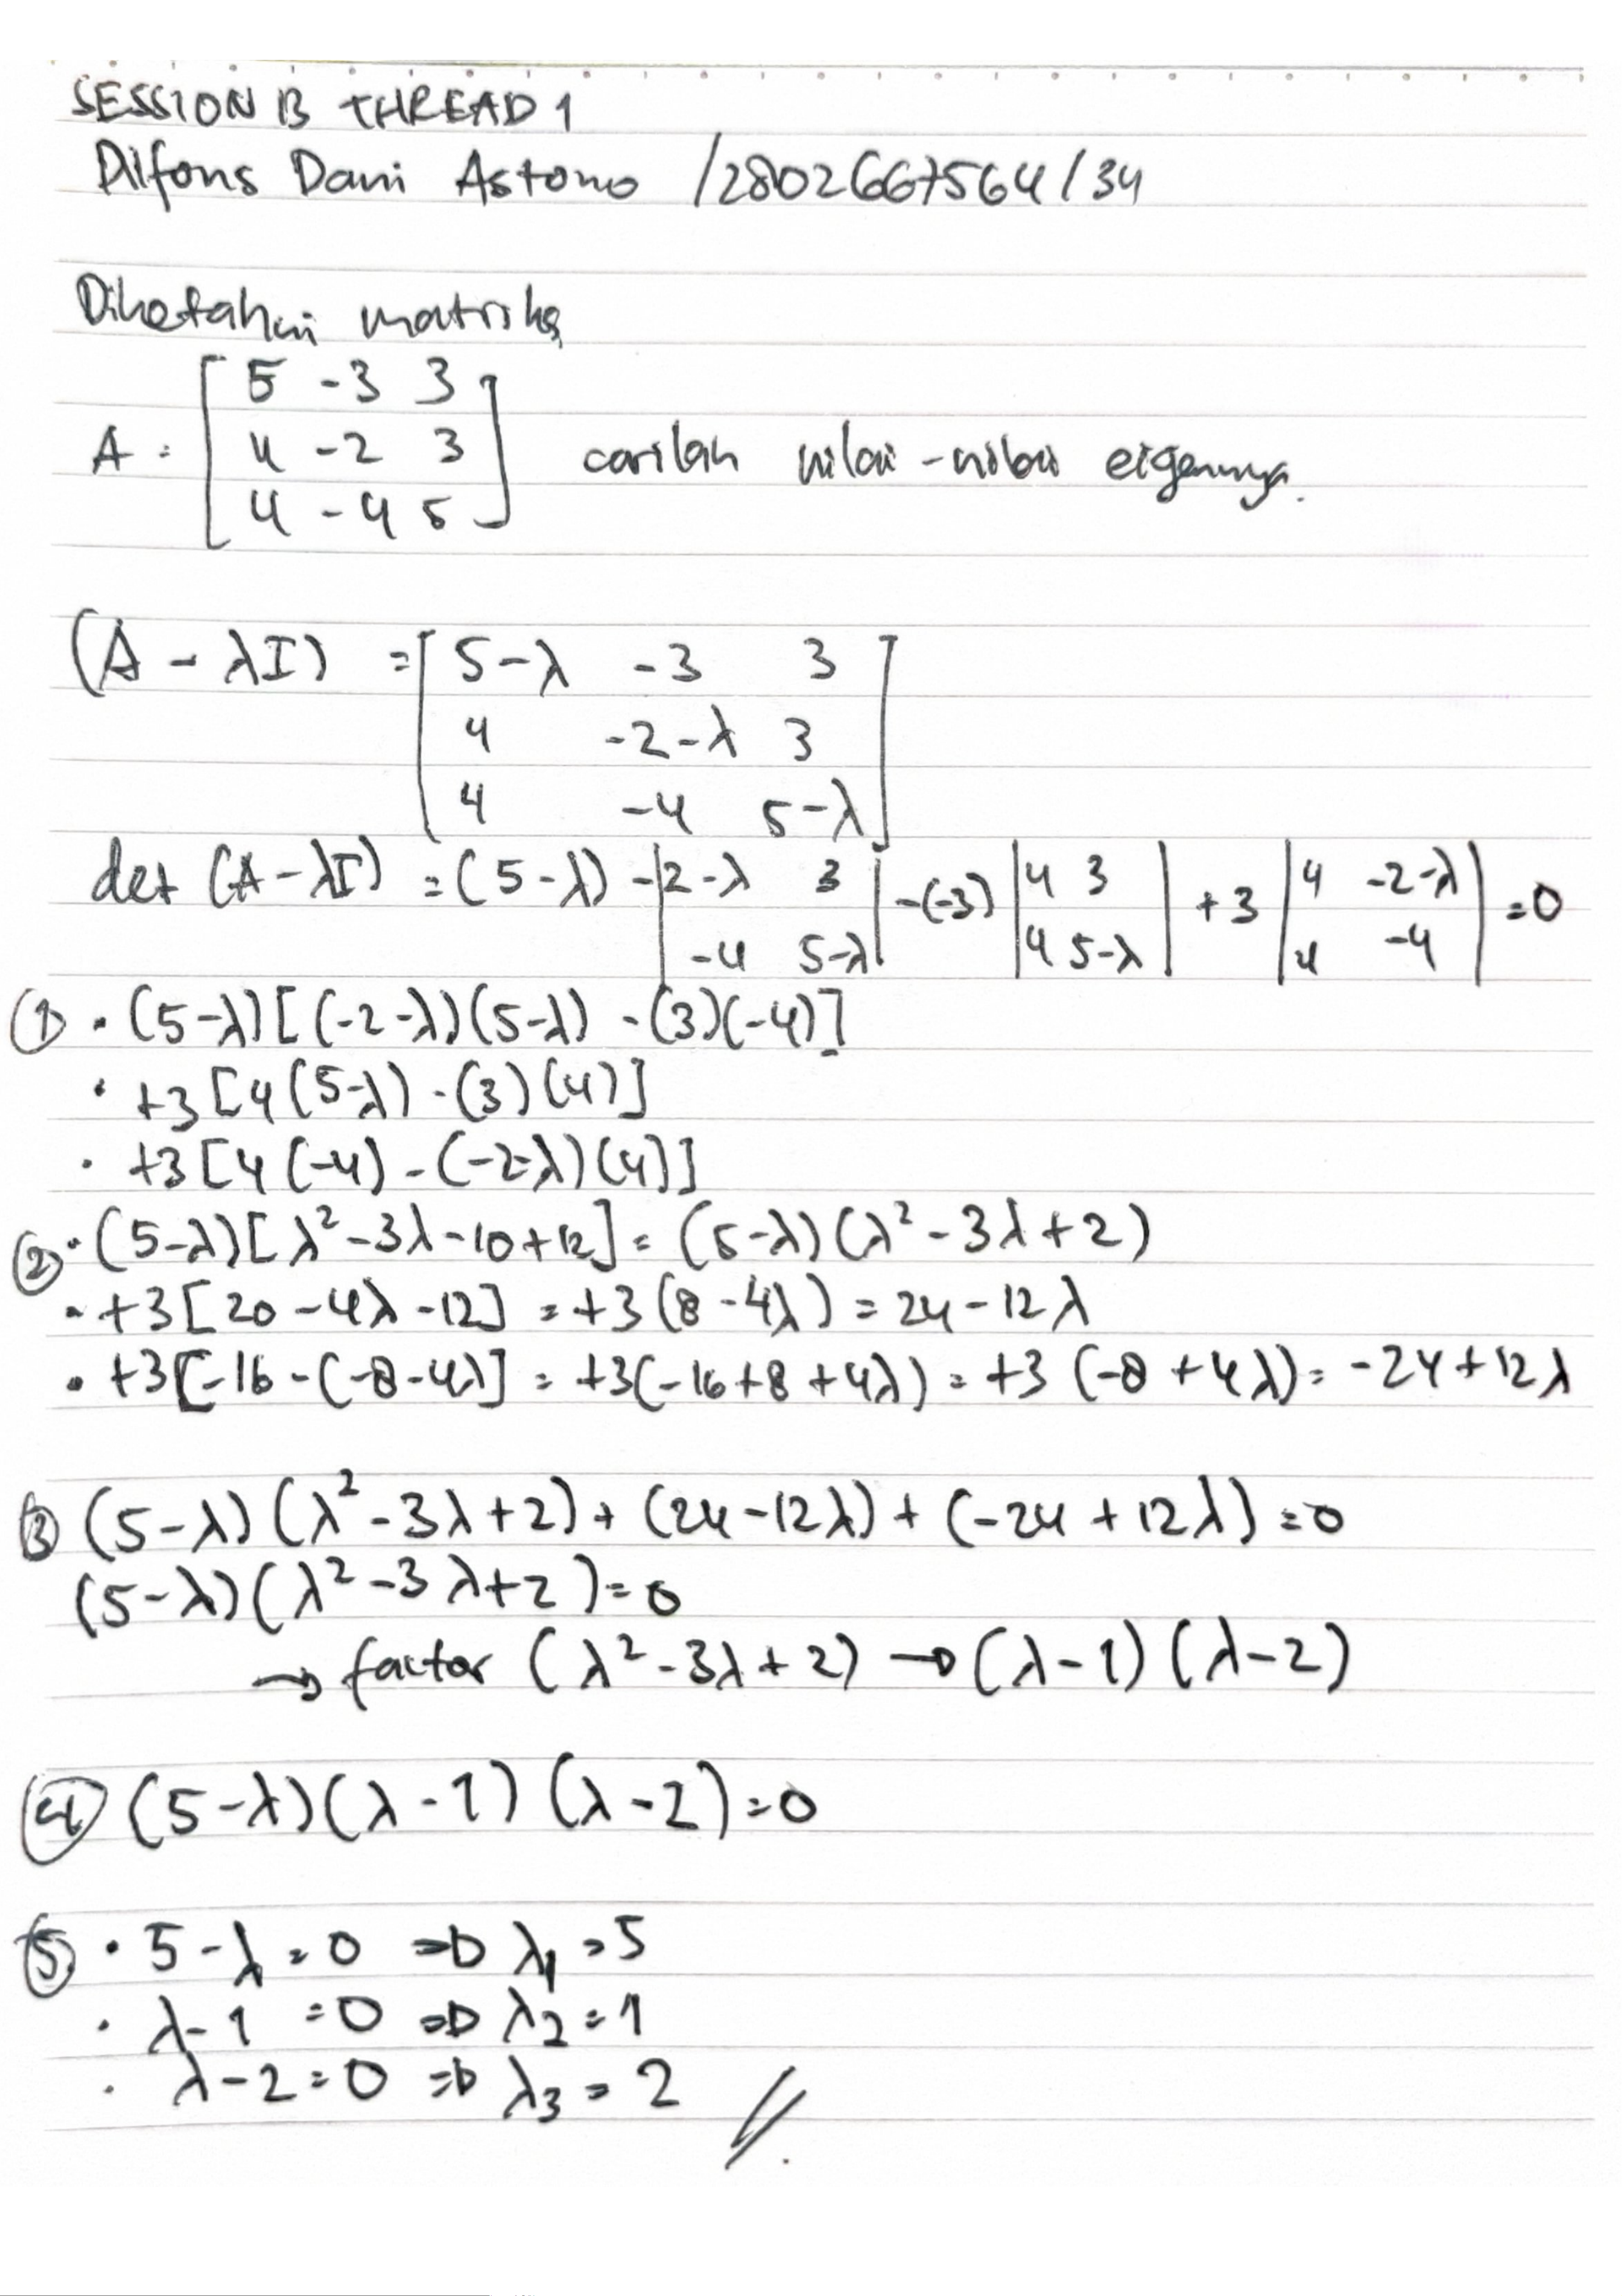 SESSION 13 THREAD 1
Difons Dani Astono /2802667564/34
Diketahui matriks
A = [ 5 -3 3
4 -2 3
4 -4 5 ] carilah nilai-nilai eigennya.
(A - λI) = [ 5-λ -3 3
4 -2-λ 3
4 -4 5-λ ]
det (A-λI) = (5-λ) |-2-λ 3| -(-3) |4 3| +3 |4 -2-λ| = 0
|-4 5-λ| |4 5-λ| |4 -4|
① • (5-λ)[(-2-λ)(5-λ) - (3)(-4)]
• +3[4(5-λ) - (3)(4)]
• +3[4(-4) - (-2-λ)(4)]
② • (5-λ)[λ² - 3λ - 10 + 12] = (5-λ)(λ² - 3λ + 2)
• +3[20 - 4λ - 12] = +3(8 - 4λ) = 24 - 12λ
• +3[-16 - (-8-4λ] = +3(-16+8+4λ) = +3(-8+4λ) = -24+12λ
③ (5-λ)(λ² - 3λ + 2) + (24 - 12λ) + (-24 + 12λ) = 0
(5-λ)(λ² - 3λ + 2) = 0
→ factor (λ² - 3λ + 2) → (λ-1)(λ-2)
④ (5-λ)(λ-1)(λ-2) = 0
⑤ • 5-λ = 0 ⇒ λ1 = 5
• λ-1 = 0 ⇒ λ2 = 1
• λ-2 = 0 ⇒ λ3 = 2